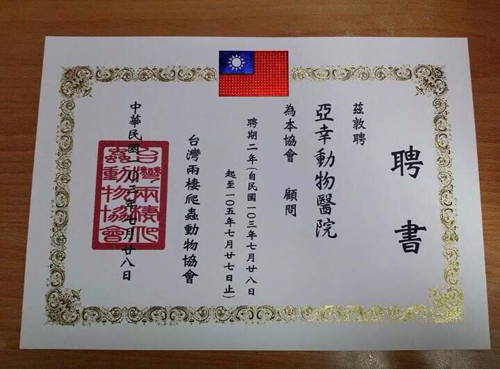 聘書
茲敦聘
亞幸動物醫院
為本協會 顧問
聘期二年(自民國一〇三年七月廿八日
起至一〇五年七月廿七日止)
台灣兩棲爬蟲動物協會
中華民國一〇三年七月廿八日
台灣兩棲爬
蟲動物協會